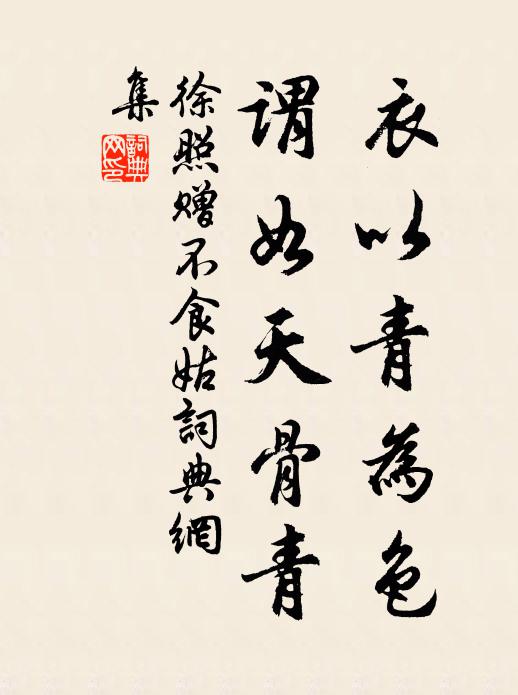 衣以青為色
謂如天骨青
徐照贈不食姑詞典網
集
詞典網印